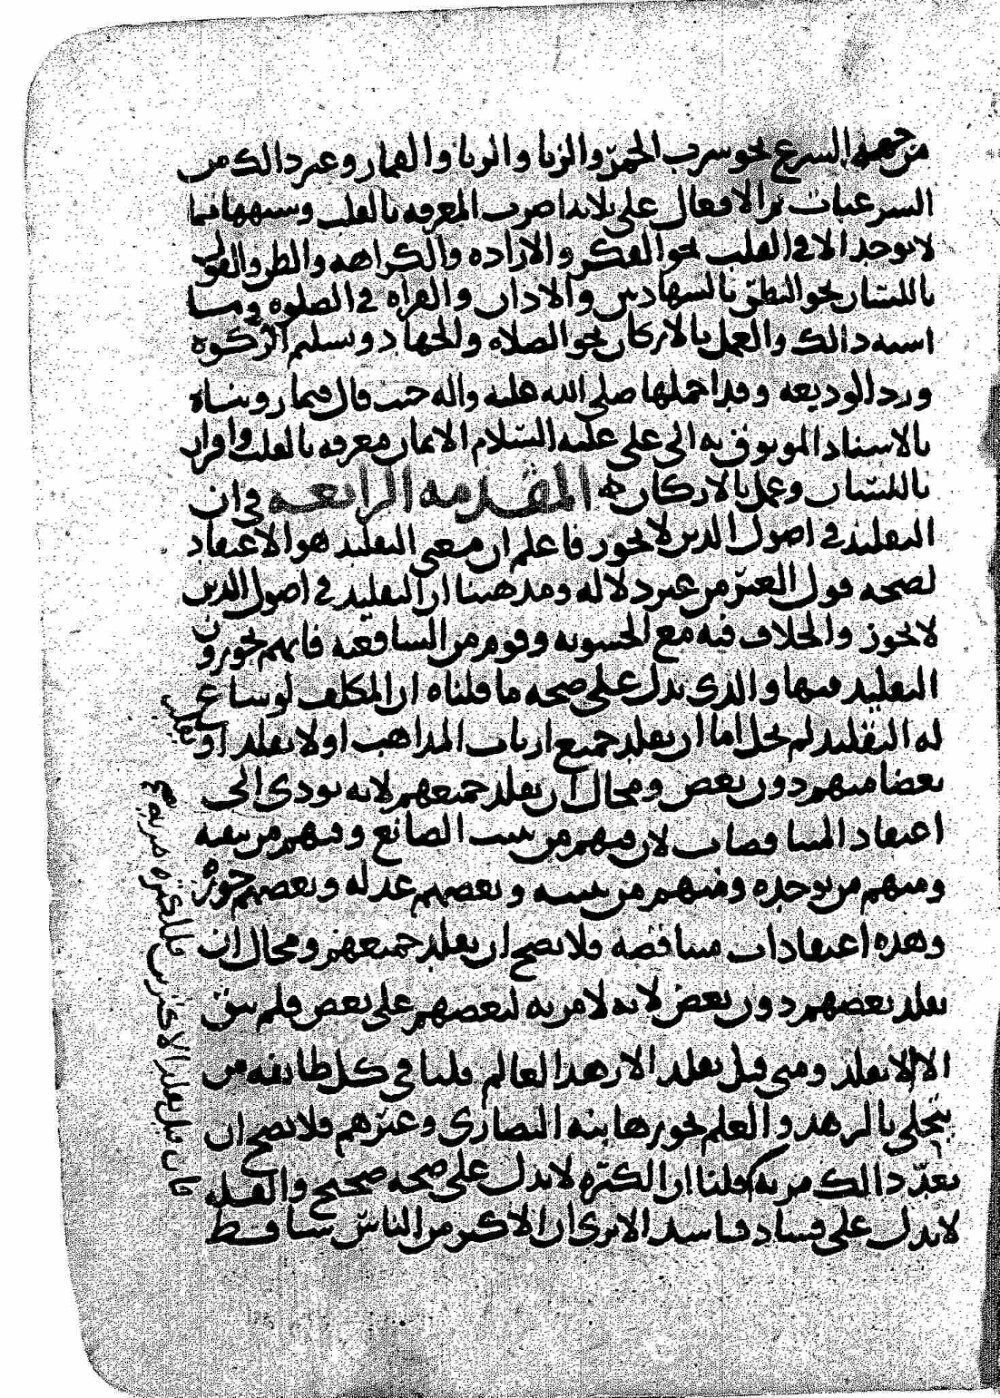 من جهه الشرع نحو شرب الخمر والزنا والربا والقمار وغير ذالك من
الشرعيات ثم الافعال على ثلاثه اضرب المعرفه بالقلب وشبهها مما
لا توجد الا في القلب نحو الفكر والاراده والكراهه والظن والقول
باللسان نحو النطق بالشهادتين والاذان والقراه في الصلوه وما
اشبه ذالك والعمل بالاركان نحو الصلاه والجهاد وتسليم الزكوه
ورد الوديعه وقد اجملها صلى الله عليه واله حيث قال فيما رويناه
بالاسناد الموثوق به الى على عليه السلام الايمان معرفه بالقلب واقرار
باللسان وعمل بالاركان المقدمه الرابعه في ان
التقليد في اصول الدين لا يجوز فاعلم ان معنى التقليد هو الاعتقاد
لصحه قول الغير من غير دلاله ومذهبنا ان التقليد في اصول الدين
لا يجوز والخلاف فيه مع الحشويه وقوم من الشافعيه فانهم يجوزون
التقليد فيها والذى يدل على صحه ما قلناه ان المكلف لو ساغ
له التقليد لم يخل اما ان يقلد جميع ارباب المذاهب او لا يقلد او يقلد
بعضا منهم دون بعض ومحال ان يقلد جميعهم لانه يودى الى
اعتقاد المتناقضات لان منهم من يثبت الصانع ومنهم من ينفيه
ومنهم من يوحده ومنهم من يثنيه وبعضهم عدله وبعضهم جوره
وهذه اعتقادات متناقضه فلا يصح ان يقلد جميعهم ومحال ان
يقلد بعضهم دون بعض لانه لا مزيه لبعضهم على بعض فلم يبق
الا الا يقلد ومتى قيل يقلد الازهد العالم قلنا في كل طائفه من
يتحلى بالزهد والعلم نحو رهابنه النصارى وغيرهم فلا يصح ان
يعد ذالك مزيه قلنا ان الكثره لا تدل على صحه صحيح والقله
لا تدل على فساد فاسد الا ترى ان الاكثر من الناس ساقط
فان قيل يقلد الاكثرين فللكثره مزيه